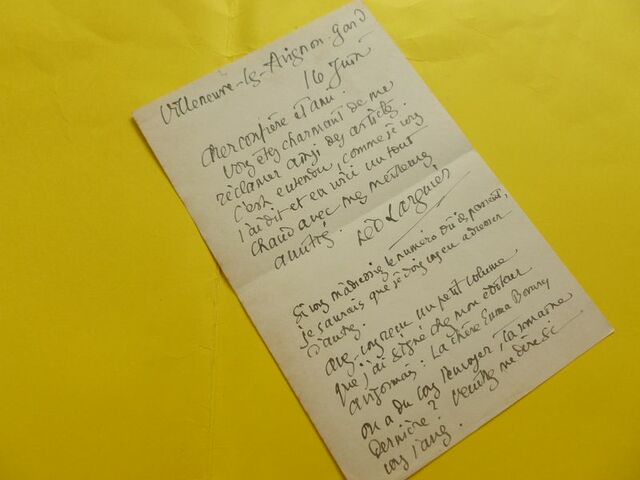 Villeneuve-lès-Avignon. Gard
16 Juin
cher confrère et ami.
vous êtes charmant de me
réclamer ainsi des articles.
C'est entendu, comme je vous
l'ai dit et en voici un tout
chaud avec mes meilleures
amitiés.
Léo Larguier
Si vous m'adressiez le numéro où ils passent,
je saurais que je dois vous en adresser
d'autres.
avez-vous reçu un petit volume
que j'ai signé chez mon éditeur
Avignonnais : La chère Emma Bovary
on a du vous l'envoyer la semaine
dernière ? veuillez me dire si
vous l'avez.